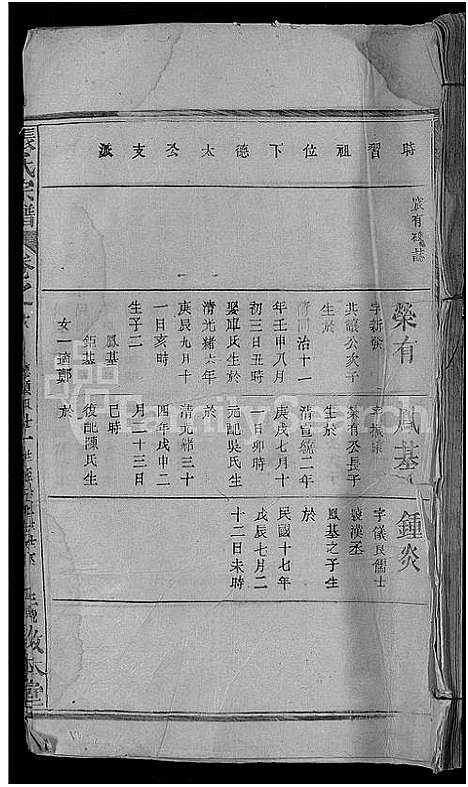 時習祖位下德太公支派
榮有
共讓公次子
生於
清同治十一
年壬申八月
初三日丑時
娶單氏生於
清光緒六年
庚辰九月十
一日亥時
生子二
鳳基
鉅基
女一適鄭
鳳基
榮有公長子
生於
清宣統二年
庚戌七月十
一日卯時
元配吳氏生
於
清光緒三十
四年戊申二
月二十三日
巳時
後配陳氏生
於
鍾炎
字儀良儒士
號漢丞
鳳基之子生
於
民國十七年
戊辰七月二
十二日未時
氏宗譜
敦本堂
FamilySearch